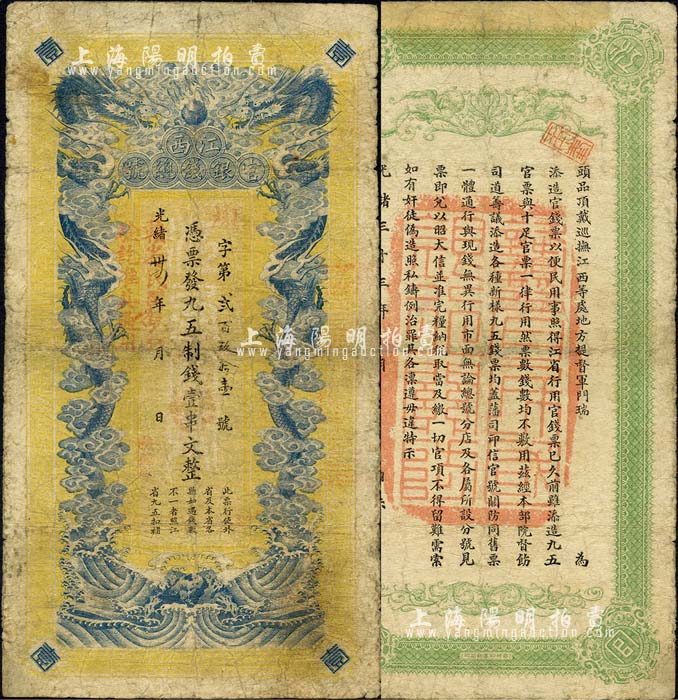 上海陽明拍賣
www.yangmingauction.com
壹
壹
江西
官銀錢總號
字第貳百玖拾壹號
憑票發九五制錢壹串文整
光緒卅 年 月 日
此票行使外
省及本省各
縣如遇錢票
不一者照江
省九五扣補
壹
壹
上海陽明拍賣
www.yangmingauction.com
頭品頂戴巡撫江西等處地方提督軍門瑞 為
添造官錢票以便民用事照得江省行用官錢票已久前雖添造九五
官票與十足官票一律行用然票數錢數均不敷用茲經本部院督飭
司道籌議添造各種新樣九五錢票均蓋藩司印信官號關防同舊票
一體通行與現錢無異行用市面無論總號分店及各屬所設分號見
票即兌以昭大信並准完糧納稅取當及繳一切官項不得留難需索
如有奸徒偽造照私鑄例治罪其各凜遵毋違特示
光緒三十三年 月
上海陽明拍賣
www.yangmingauction.com
上海陽明拍賣
www.yangmingauction.com